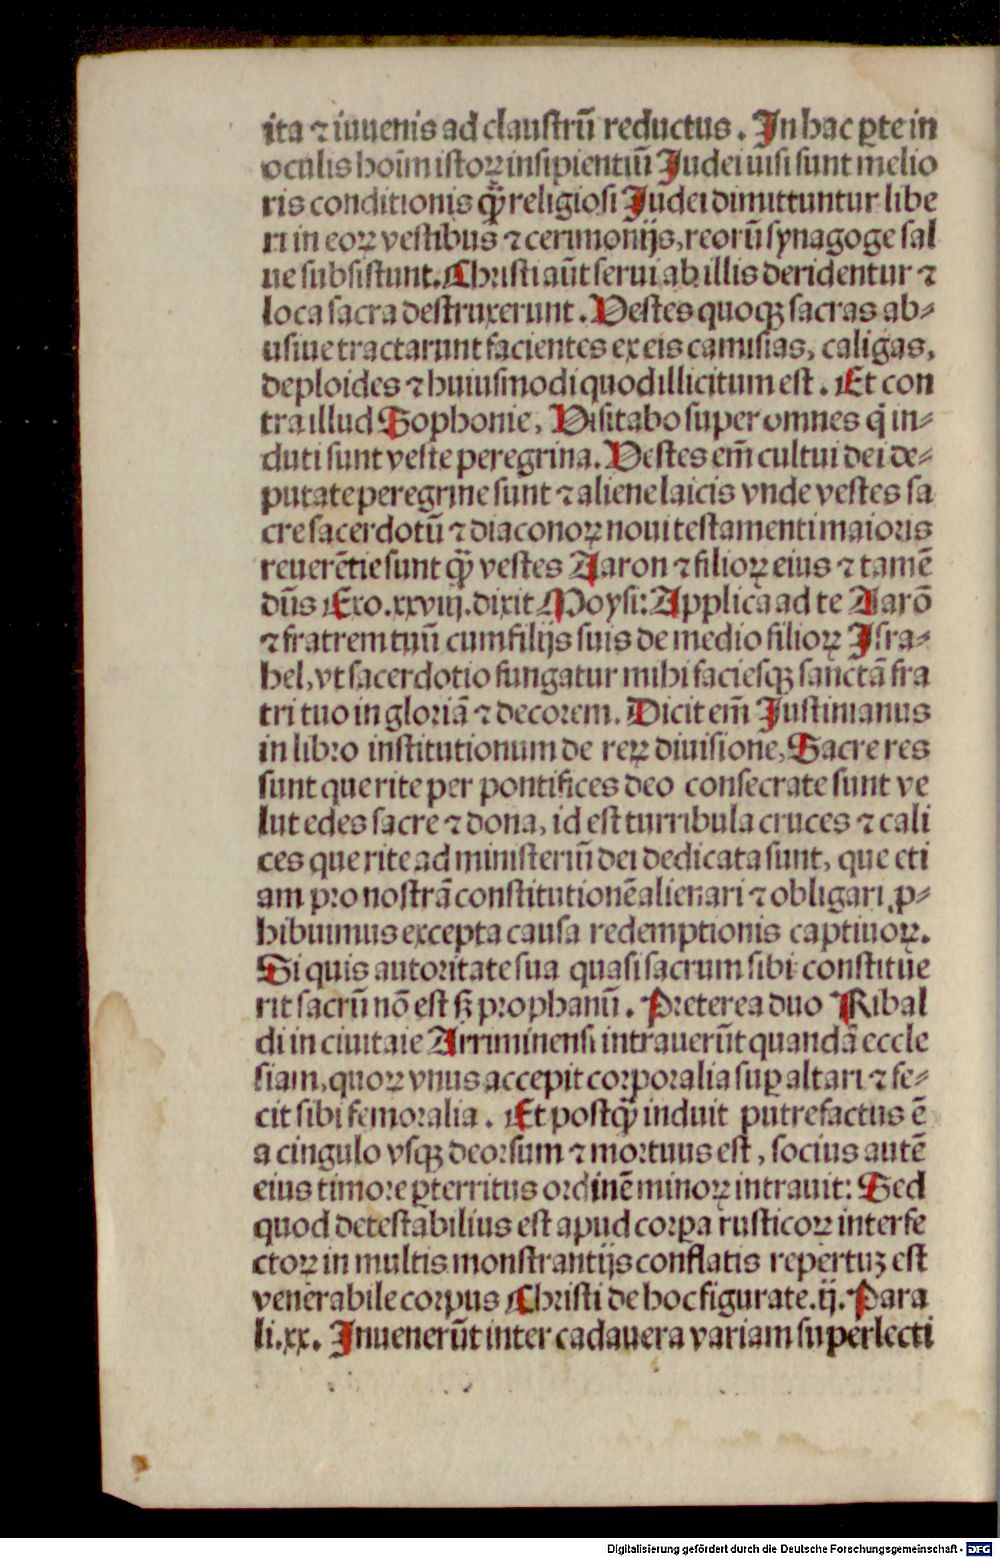 ita ⁊ iuuenis ad claustrū reductus. In hac ꝑte in
oculis hoīm istoꝝ insipientiū Judei uisi sunt melio
ris conditionis q̈̄ religiosi Judei dimittuntur libe
ri in eoꝝ vestibus ⁊ cerimonijs, reorū synagoge sal
ue subsistunt. Christi aūt serui ab illis deridentur ⁊
loca sacra destruxerunt. Vestes quoqꝫ sacras ab⸗
usiue tractarunt facientes ex eis camisias, caligas,
deploides ⁊ huiusmodi quod illicitum est. Et con
tra illud Sophonie, Visitabo super omnes q̄ in⸗
duti sunt veste peregrina. Vestes em̄ cultui dei de⸗
putate peregrine sunt ⁊ aliene laicis vnde vestes sa
cre sacerdotū ⁊ diaconoꝝ noui testamenti maioris
reuerētie sunt q̈̄ vestes Aaron ⁊ filioꝝ eius ⁊ tamē
dn̄s Exo.xxviij. dixit Moysi: Applica ad te Aarō
⁊ fratrem tuū cum filijs suis de medio filioꝝ Isra⸗
hel, vt sacerdotio fungatur mihi faciesqꝫ sanctā fra
tri tuo in gloriā ⁊ decorem. Dicit em̄ Justinianus
in libro institutionum de reꝝ diuisione, Sacre res
sunt que rite per pontifices deo consecrate sunt ve
lut edes sacre ⁊ dona, id est turribula cruces ⁊ cali
ces que rite ad ministeriū dei dedicata sunt, que eti
am pro nostrā constitutionē alienari ⁊ obligari ꝓ⸗
hibuimus excepta causa redemptionis captiuoꝝ.
Si quis autoritate sua quasi sacrum sibi constitue
rit sacrū nō est sꝫ prophanū. Preterea duo Ribal
di in ciuitate Arriminensi intrauerūt quandā eccle
siam, quoꝝ vnus accepit corporalia suꝑ altari ⁊ fe⸗
cit sibi femoralia. Et postq̈̄ induit putrefactus ē
a cingulo vsqꝫ deorsum ⁊ mortuus est, socius autē
eius timore ꝑterritus ordinē minoꝝ intrauit: Sed
quod detestabilius est apud corꝑa rusticoꝝ interfe
ctoꝝ in multis monstrantijs conflatis repertuꝫ est
venerabile corpus Christi de hoc figurate.ij. Para
li.xx. Inuenerūt inter cadauera variam superlecti
Digitalisierung gefördert durch die Deutsche Forschungsgemeinschaft - DFG